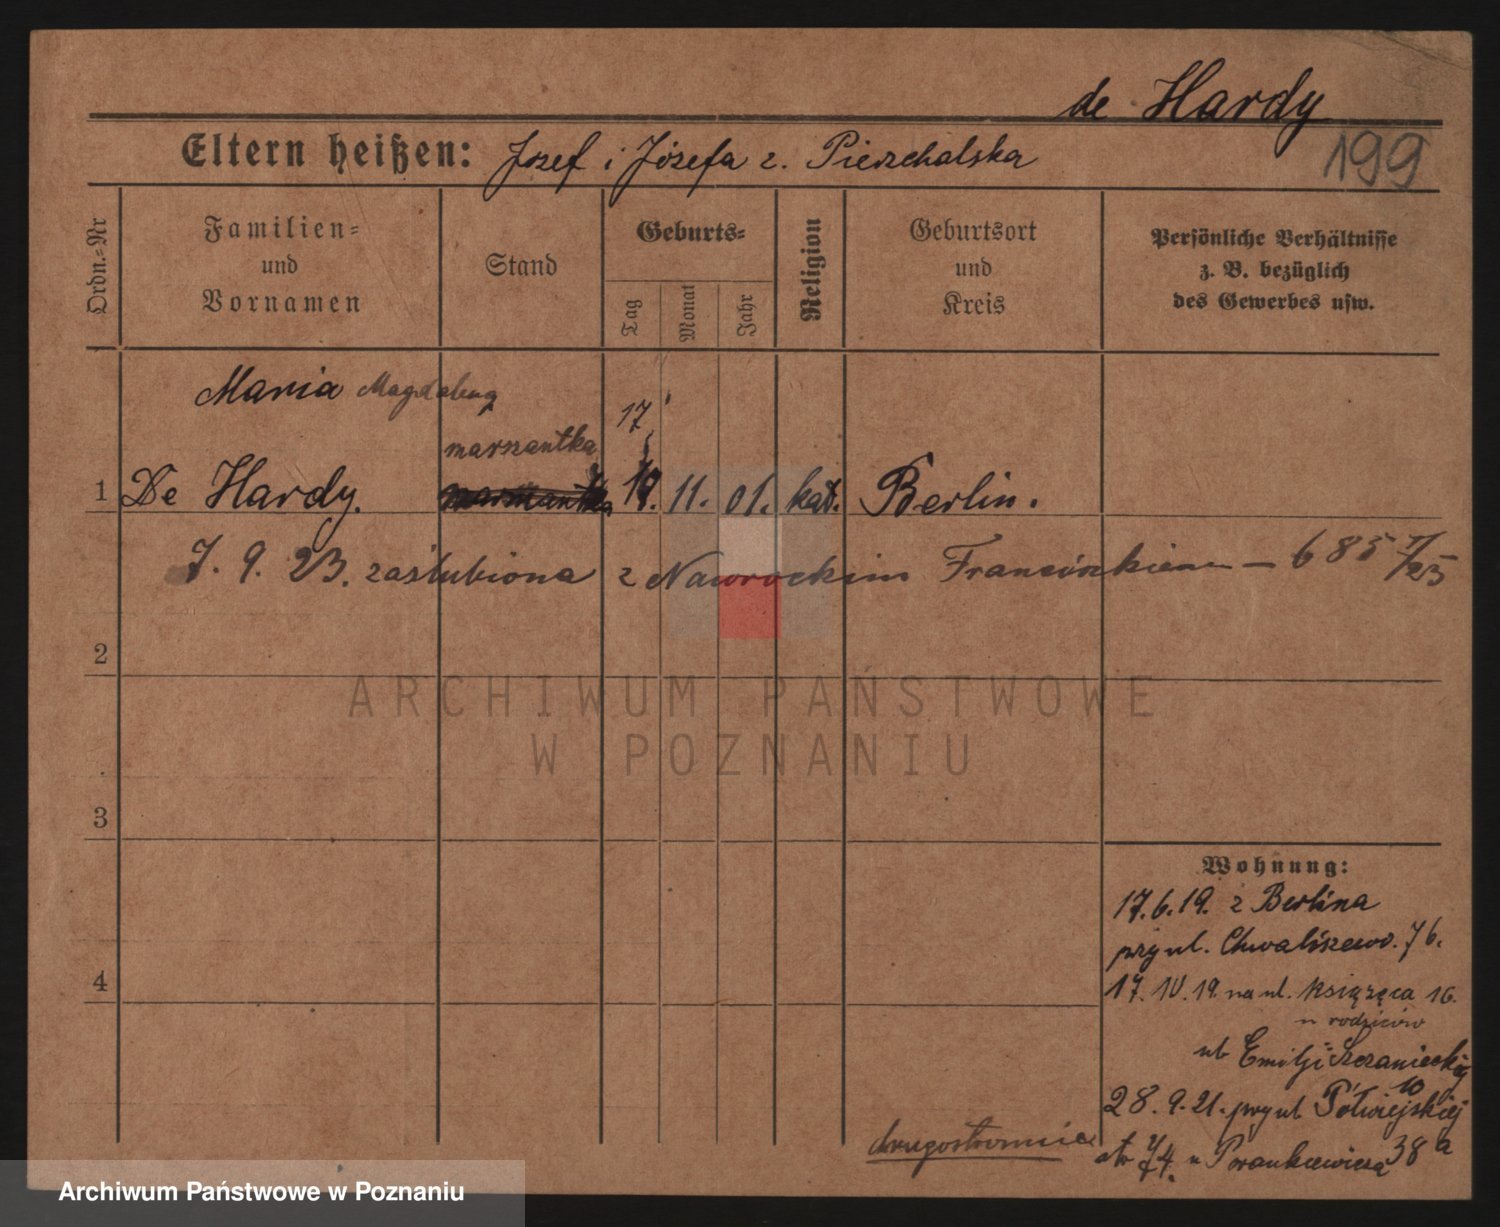 de Hardy
199
Eltern heißen: Jozef i Józefa z. Pierzchalska
Ordn.-Nr
Familien- und Vornamen
Stand
Geburts-
Tag
Monat
Jahr
Religion
Geburtsort und Kreis
Persönliche Verhältnisse z. B. bezüglich des Gewerbes usw.
Maria Magdalena
17
marszantka
1 De Hardy. 11. 01. kat. Berlin.
7. 9. 23. zaślubiona z Nawrockim Franciszkiem — 685/23
2
ARCHIWUM PAŃSTWOWE
W POZNANIU
3
Wohnung:
17.6.19. z Berlina
przy ul. Chwaliszewo. 76.
4
17. IV. 19. na ul. Książęca 16.
u rodziców
ul. Emilji Szczanieckiej
10
28. 9. 21. przy ul Półwiejskiej
38a
drugostronnie
u Porankiewicza
Archiwum Państwowe w Poznaniu